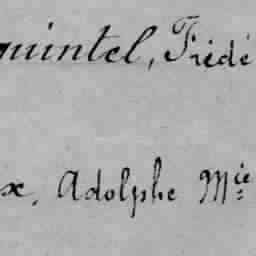 quintel, Frédé
x, Adolphe Mie